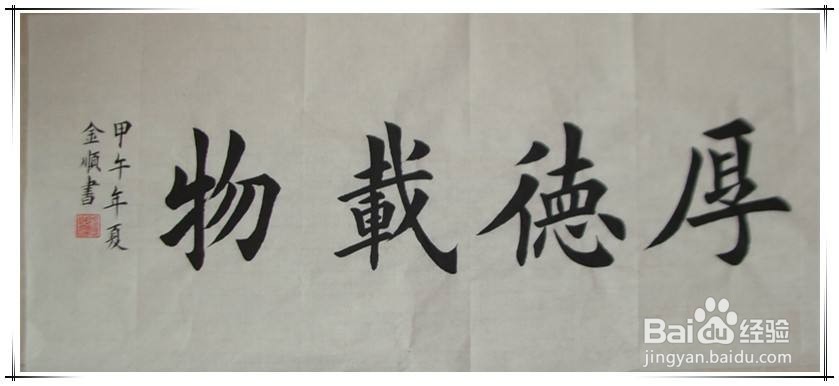 厚德載物
甲午年夏
金順書
Baidu经验
jingyan.baidu.com